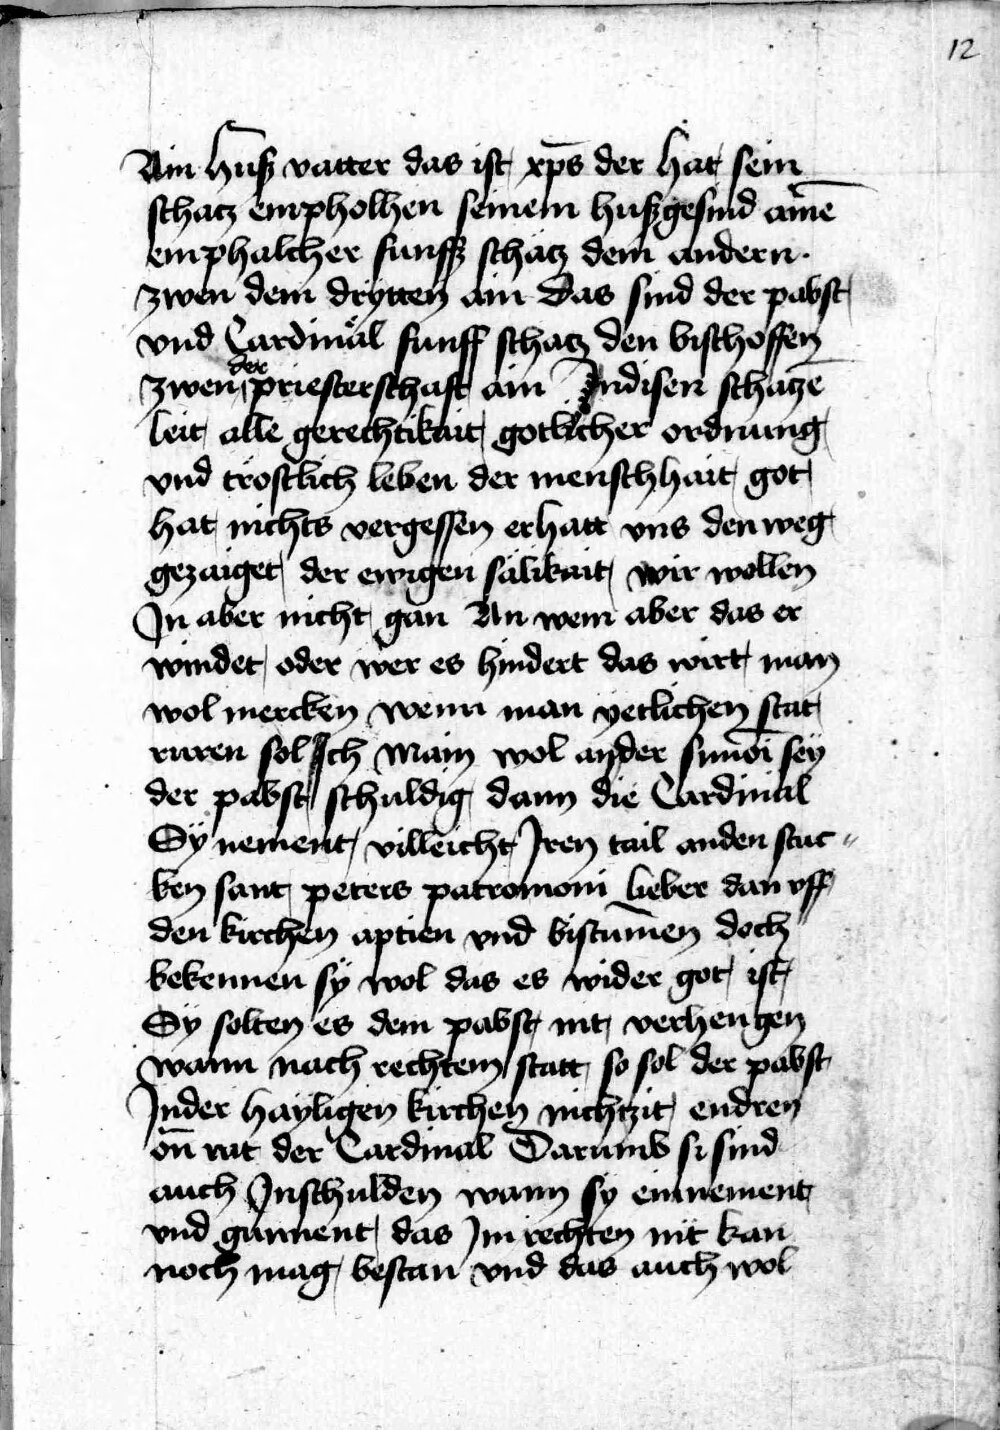 12
Ain huß vatter das ist xp̄s der hat sein
schatz empholhen seinem hußgesind aīnē
emphalcher funff schatz dem andern.
zwen dem drytten ain Das sind der pabst
vnd Cardinäl funff schatz den bischoffen
zwen der priesterschaft ain Indisen schatzē
leit alle gerechtikait gotlicher ordnung
vnd tröstlich leben der menschhait got
hat nichts vergessen erhatt vns den weg
gezaiget der ewigen sälikait wir wollen
In aber nicht gan An wem aber das er
windet oder wer es hindert das wirt man
wol mercken wenn man yetlichen stat
ruren sol Ich Main wol ander simōi sey
der pabst schuldig dann die Cardinal
Sy nement villeicht Iren tail anden stuc〃
ken sant peters patromoni lieber dan vff
den kirchen aptien vnd bistum̄en doch
bekennen sy wol das es wider got ist
Sy solten es dem pabst nit verhengen
wann nach rechtem statt so sol der pabst
Inder hayligen kirchen nichtzit endren
on̄ rat der Cardinal Darumb si sind
auch Inschulden wann sy einnement
vnd gunnent das Im rechten nit kan
noch mag bestan vnd das auch wol